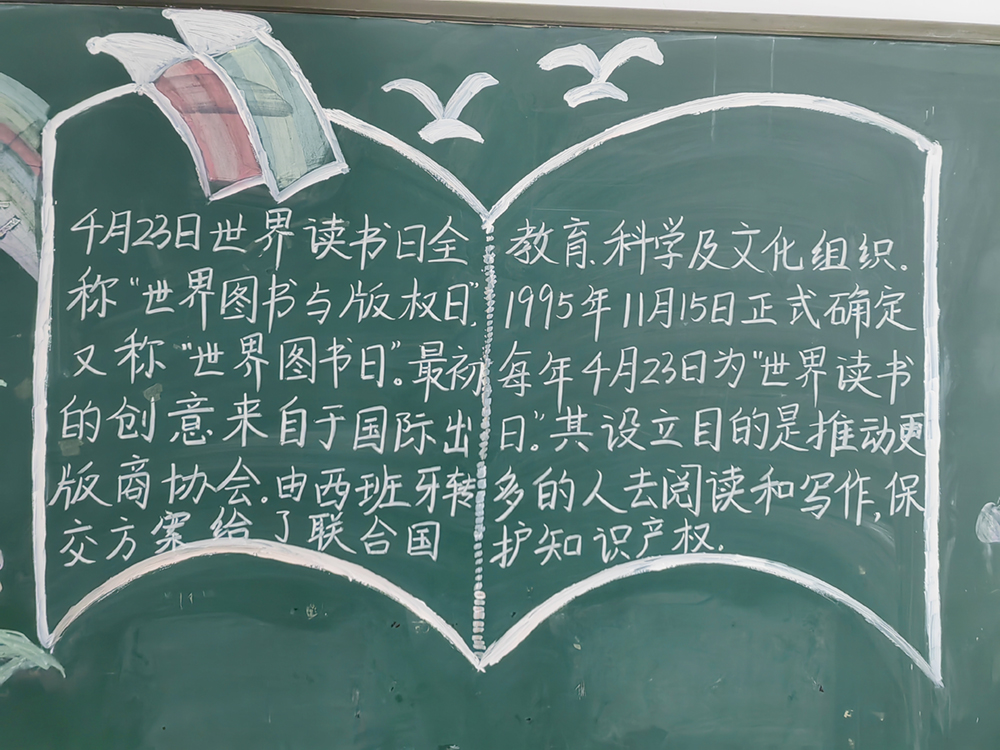 4月23日世界读书日全
称“世界图书与版权日”,
又称“世界图书日”。最初
的创意来自于国际出
版商协会.由西班牙转
交方案给了联合国
教育.科学及文化组织.
1995年11月15日正式确定
每年4月23日为“世界读书
日”。其设立目的是推动更
多的人去阅读和写作,保
护知识产权.